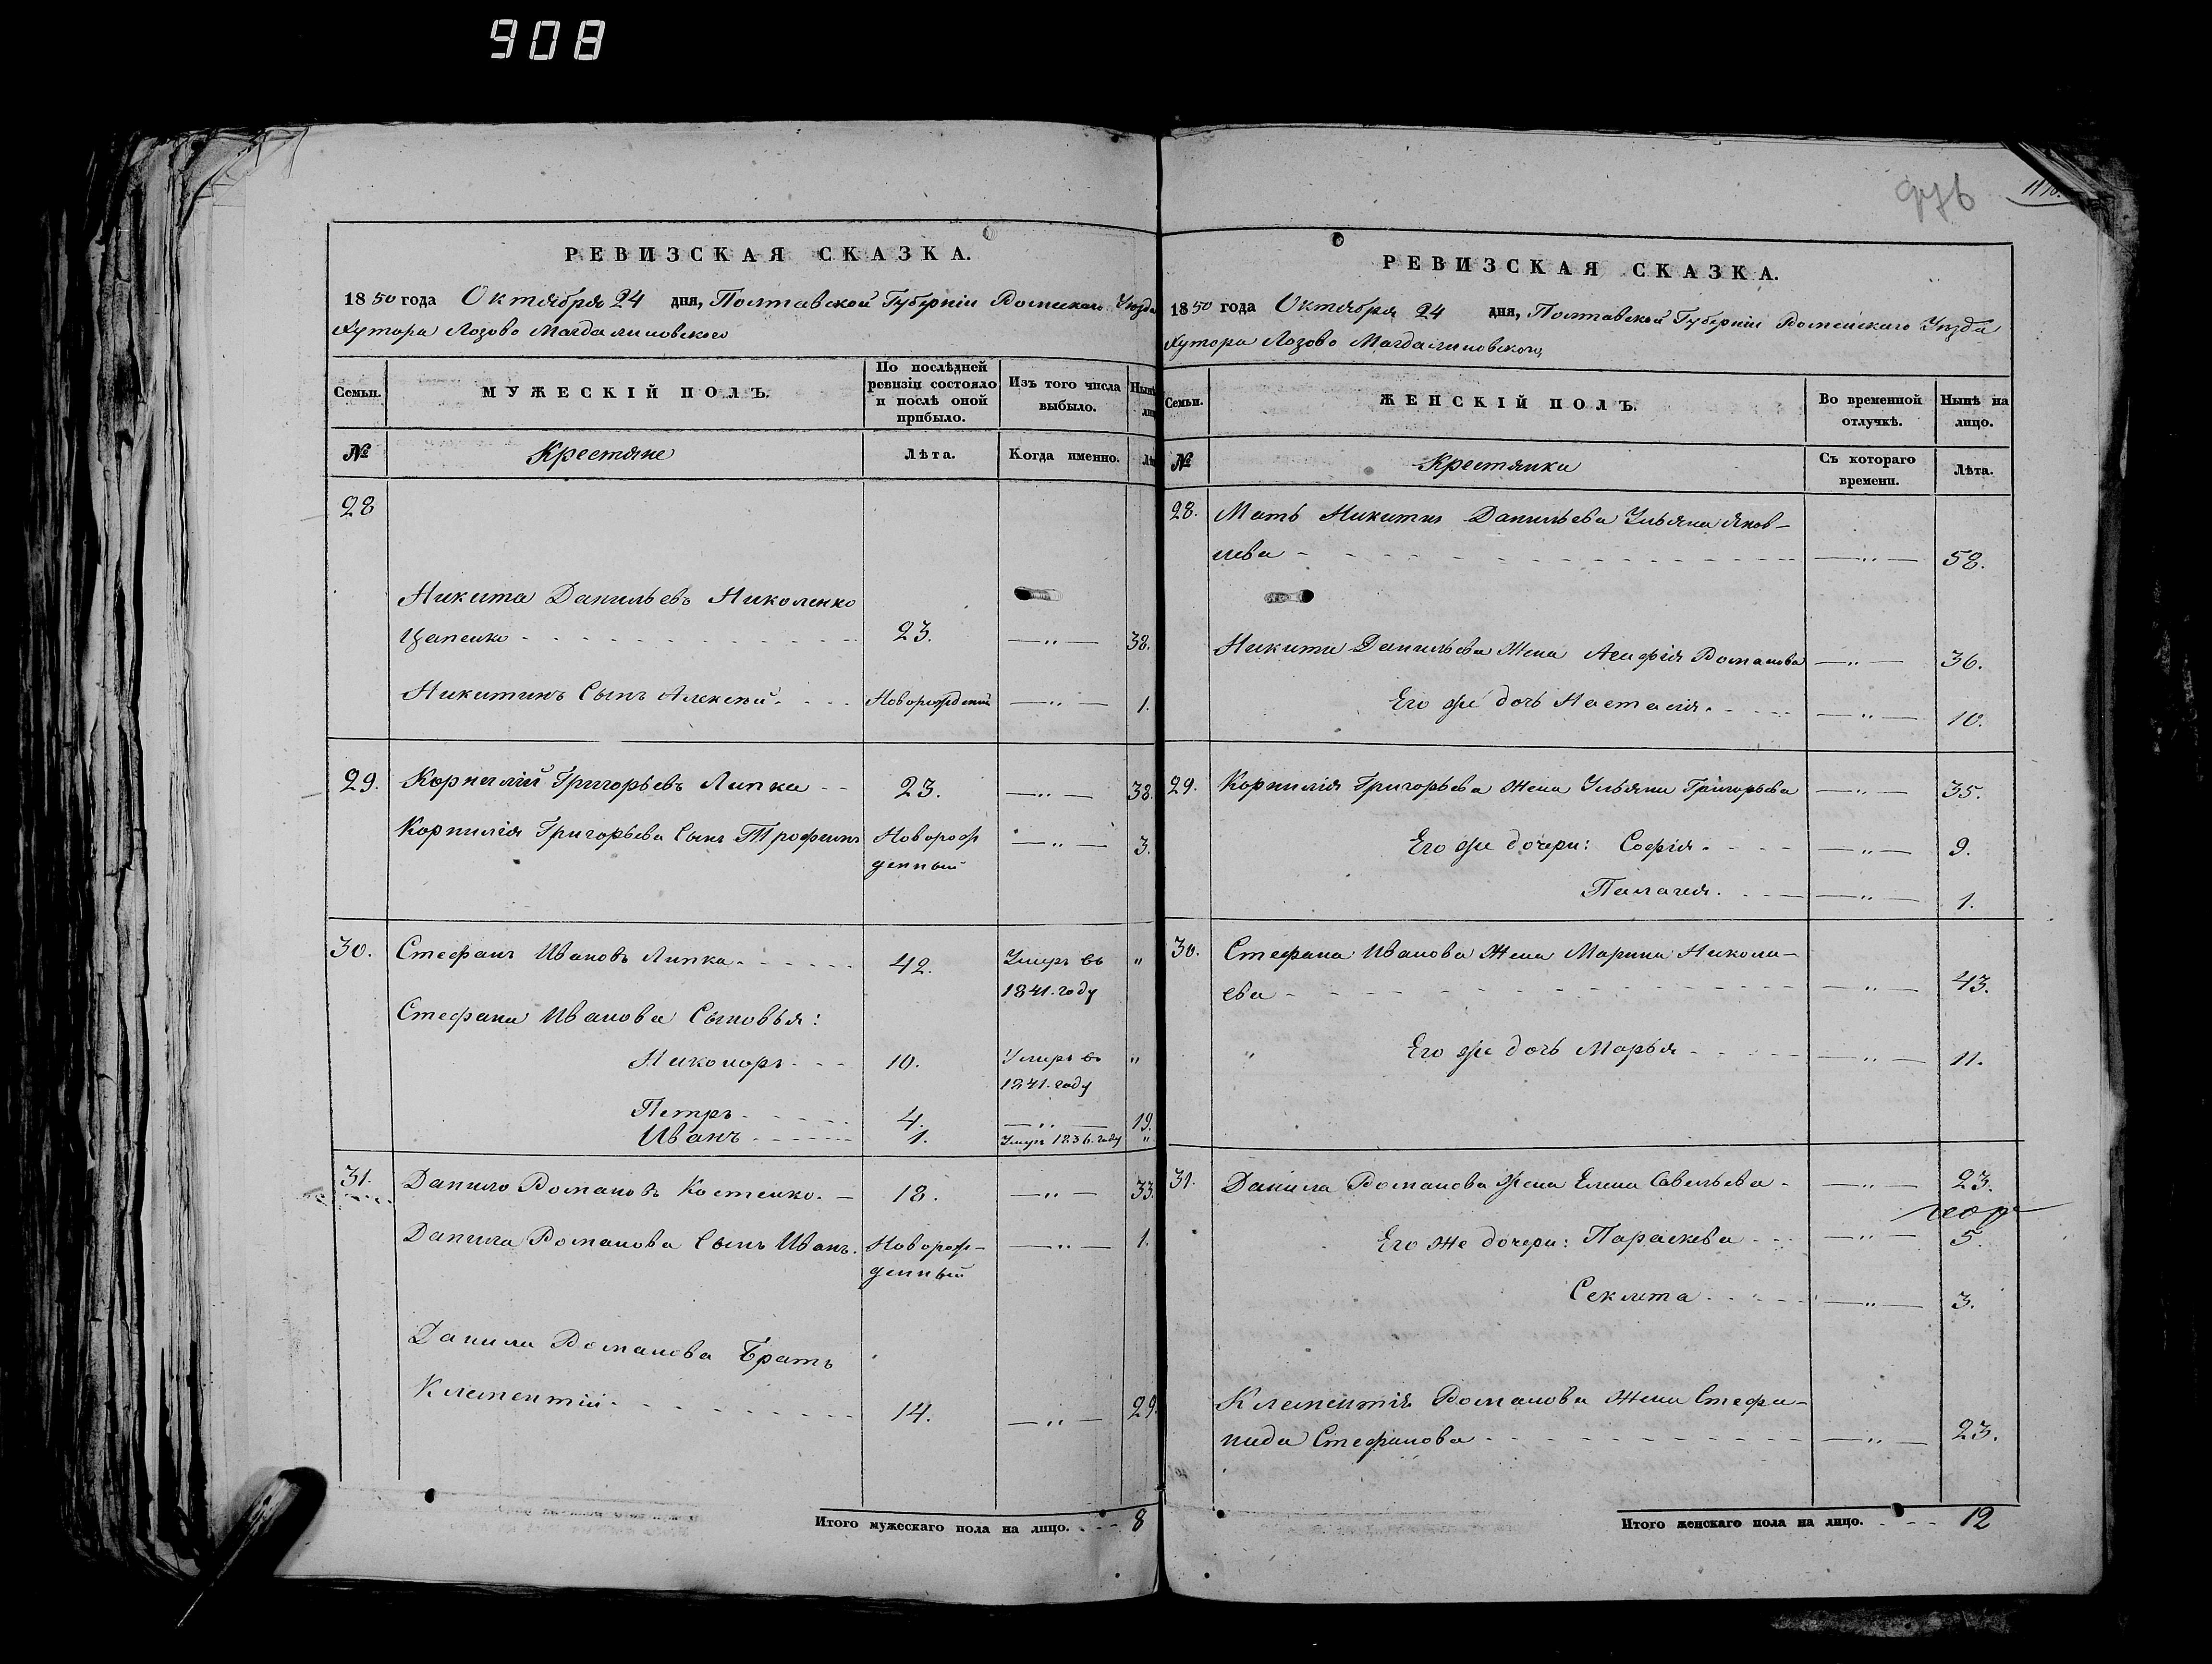 908
976
РЕВИЗСКАЯ СКАЗКА.
1850 года Октября 24 дня, Полтавской Губерніи Роменскаго Уѣзда
Хутора Лозово Магдалиновского
Семьи.
МУЖЕСКІЙ ПОЛЪ.
По послѣдней
ревизіи состояло
и послѣ оной
прибыло.
Изъ того числа
выбыло.
№
Крестяне
Лѣта.
Когда именно.
28
Никита Данильевъ Николенко
Цапенко 23. —„— 38.
Никитинъ Сынъ Алексѣй. Новорожденый —„— 1.
29. Корнилій Григорьевъ Липка 23. —„— 38.
Корнилія Григорьева Сынъ Трофимъ Новорож —„— 3.
денный
30. Стефанъ Ивановъ Липка 42. Умеръ въ „
1841. году
Стефана Иванова Сыновья:
Никоноръ 10. Умеръ въ „
1841. году
Петръ 4. —„— 19.
Иванъ 1. Умеръ 1836. году „
31. Данило Романовъ Костенко. 18. —„— 33.
Данила Романова Сынъ Иванъ. Новорож- —„— 1.
денный
Данила Романова Братъ
Клементій 14. —„— 29.
Итого мужескаго пола на лицо. 8
РЕВИЗСКАЯ СКАЗКА.
1850 года Октября 24 дня, Полтавской Губерніи Роменскаго Уѣзда
Хутора Лозово Магдалиновского,
Семьи.
ЖЕНСКІЙ ПОЛЪ.
Во временной
отлучкѣ.
Нынѣ на
лицо.
№
Крестянки
Съ котораго
времени.
Лѣта.
28. Мать Никиты Данильева Ульяна Яков-
лева —„— 58.
Никиты Данильева Жена Агафія Романова —„— 36.
Его же дочь Настасія. —„— 10.
29. Корнилія Григорьева жена Ульяна Григорьева —„— 35.
Его же дочери: Софія. —„— 9.
Палагея. —„— 1.
30. Стефана Иванова Жена Марина Никола-
ева —„— 43.
„ Его же дочь Марья —„— 11.
31. Данила Романова жена Елена Савельева —„— 23.
Его же дочери: Параскева —„— 5.
Секлета —„— 3.
Клементія Романова жена Стефа-
нида Стефанова —„— 23.
Итого женскаго пола на лицо. 12